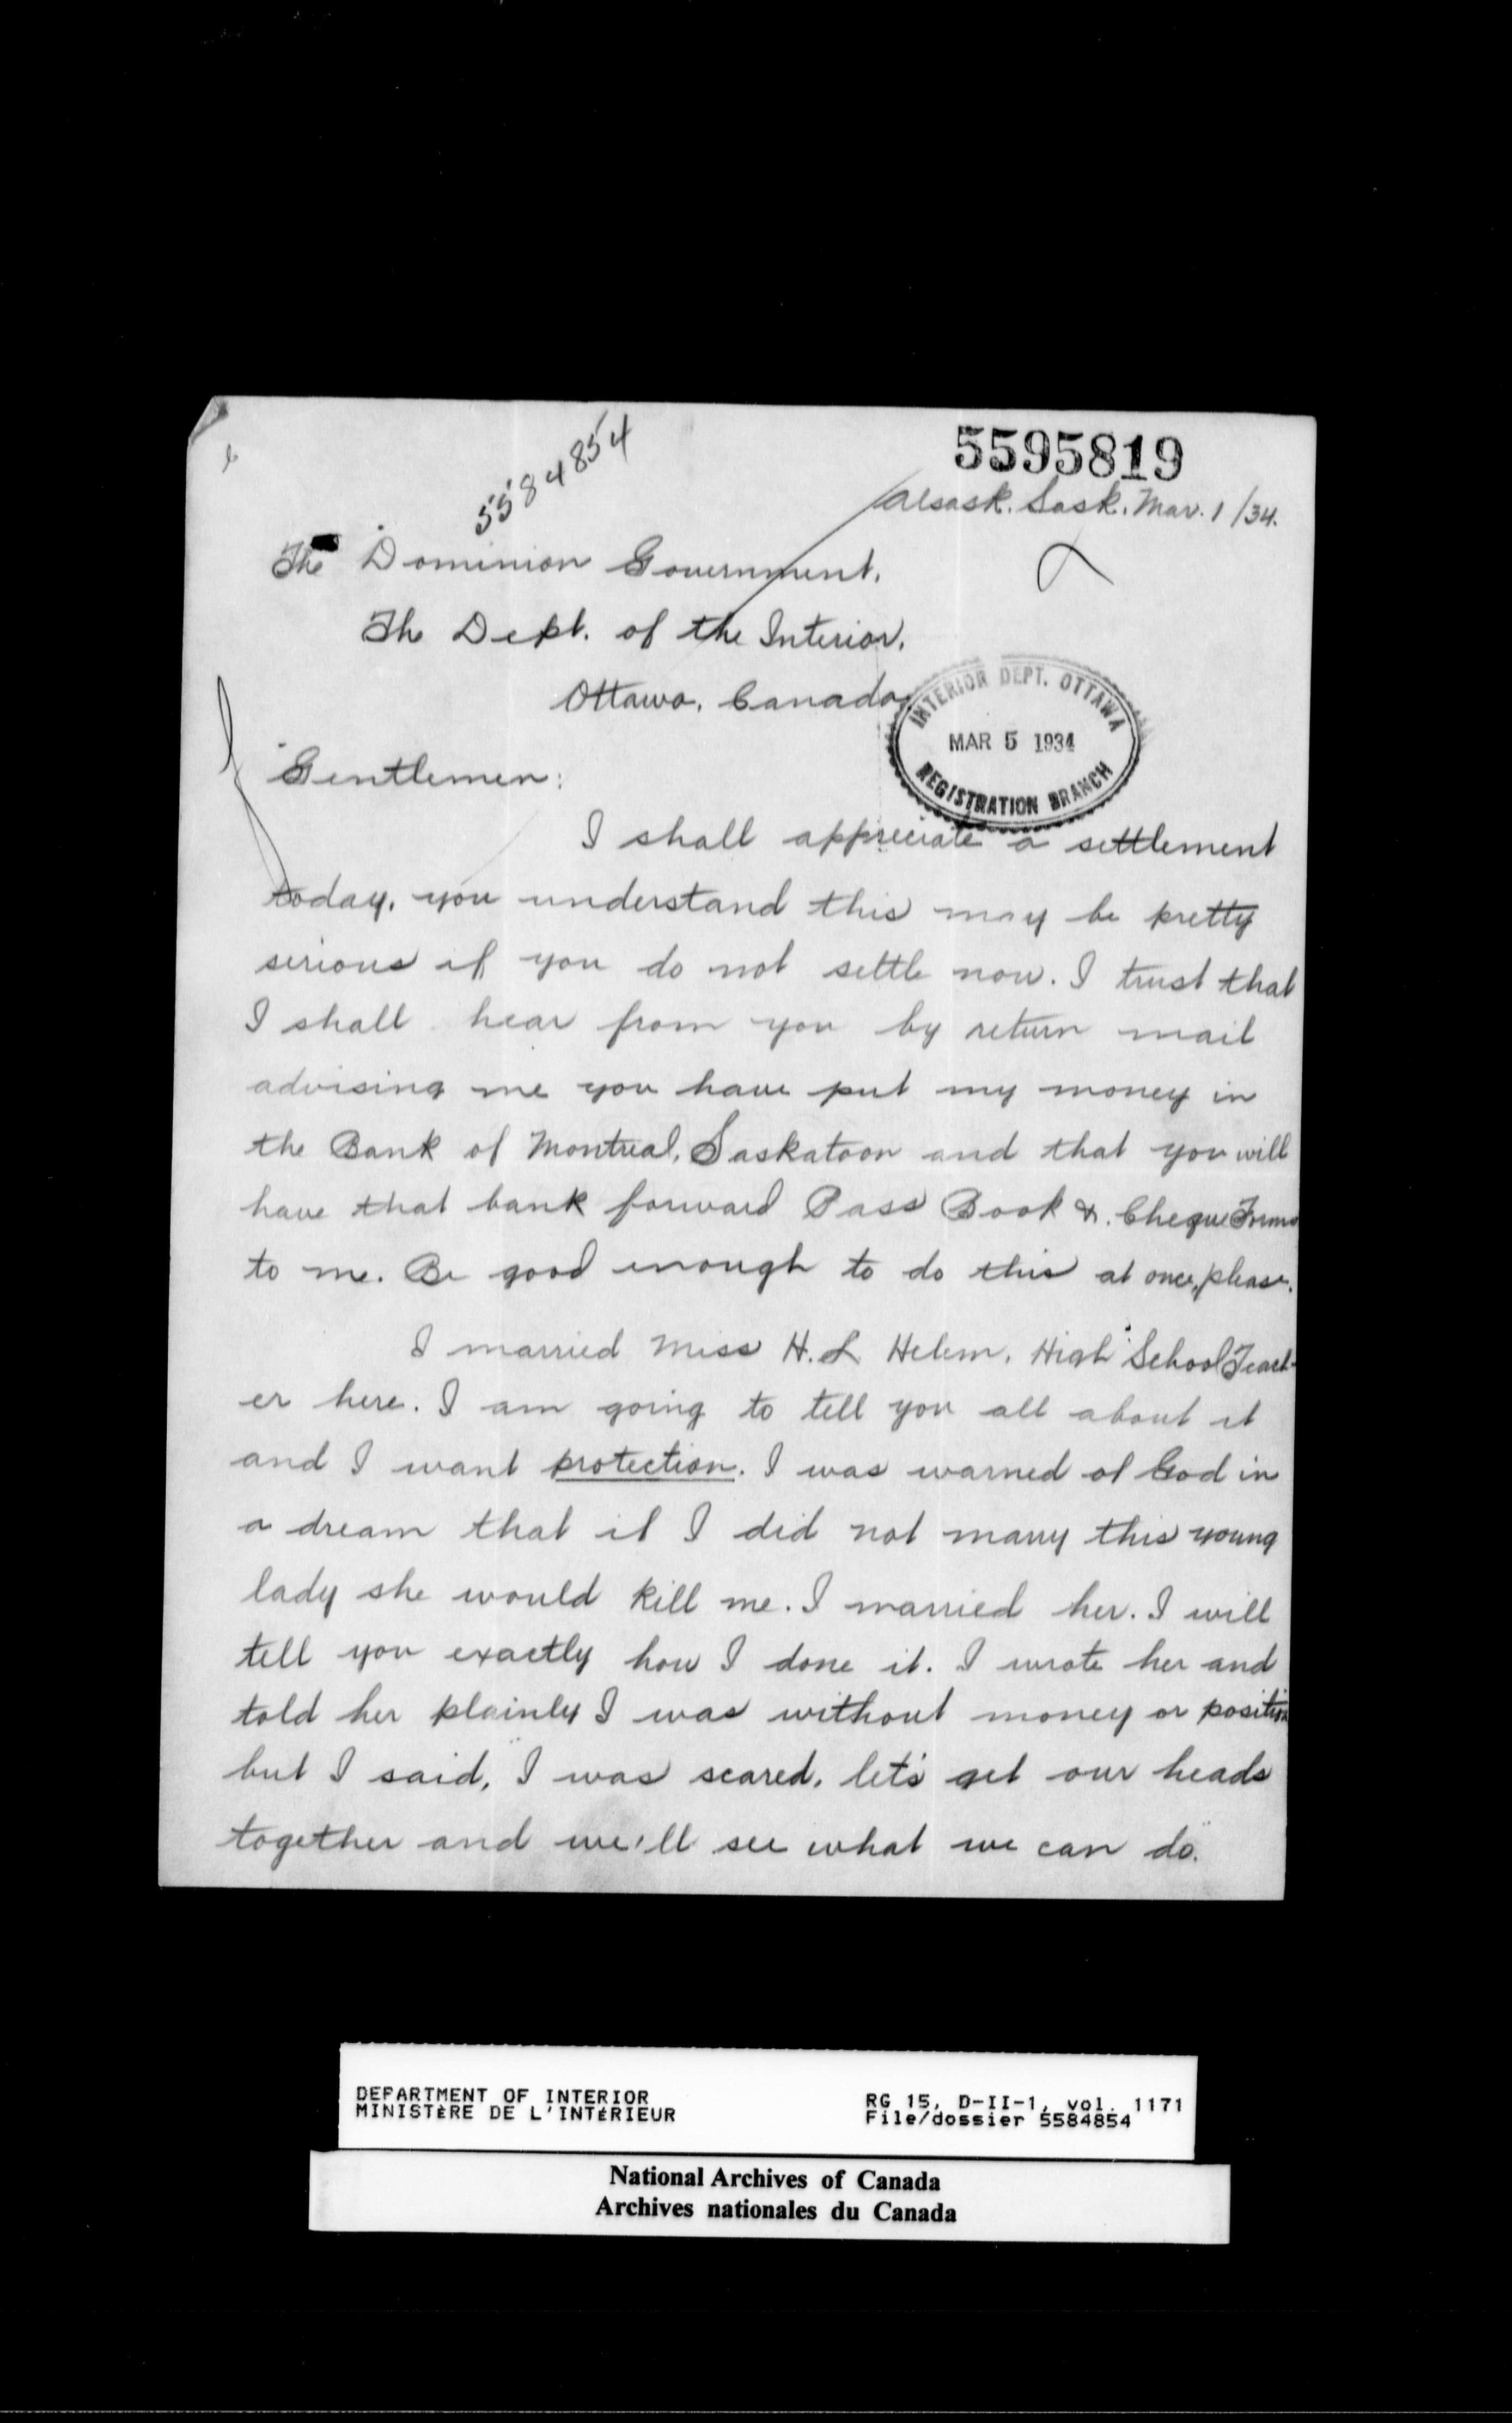 5584854
5595819
Alsask. Sask. Mar. 1/34.
The Dominion Government,
The Dept. of the Interior,
Ottawa, Canada,
INTERIOR DEPT. OTTAWA
MAR 5 1934
REGISTRATION BRANCH
Gentlemen:
I shall appreciate a settlement
today, you understand this may be pretty
serious if you do not settle now. I trust that
I shall hear from you by return mail
advising me you have put my money in
the Bank of Montreal, Saskatoon and that you will
have that bank forward Pass Book &. Cheque Forms
to me. Be good enough to do this at once, please.
I married Miss H. L Helem, High School Teach-
er here. I am going to tell you all about it
and I want protection. I was warned of God in
a dream that if I did not marry this young
lady she would kill me. I married her. I will
tell you exactly how I done it. I wrote her and
told her plainly I was without money or position
but I said, "I was scared, let's get our heads
together and we'll see what we can do."
DEPARTMENT OF INTERIOR
MINISTÈRE DE L'INTÉRIEUR
RG 15, D-II-1, vol. 1171
File/dossier 5584854
National Archives of Canada
Archives nationales du Canada